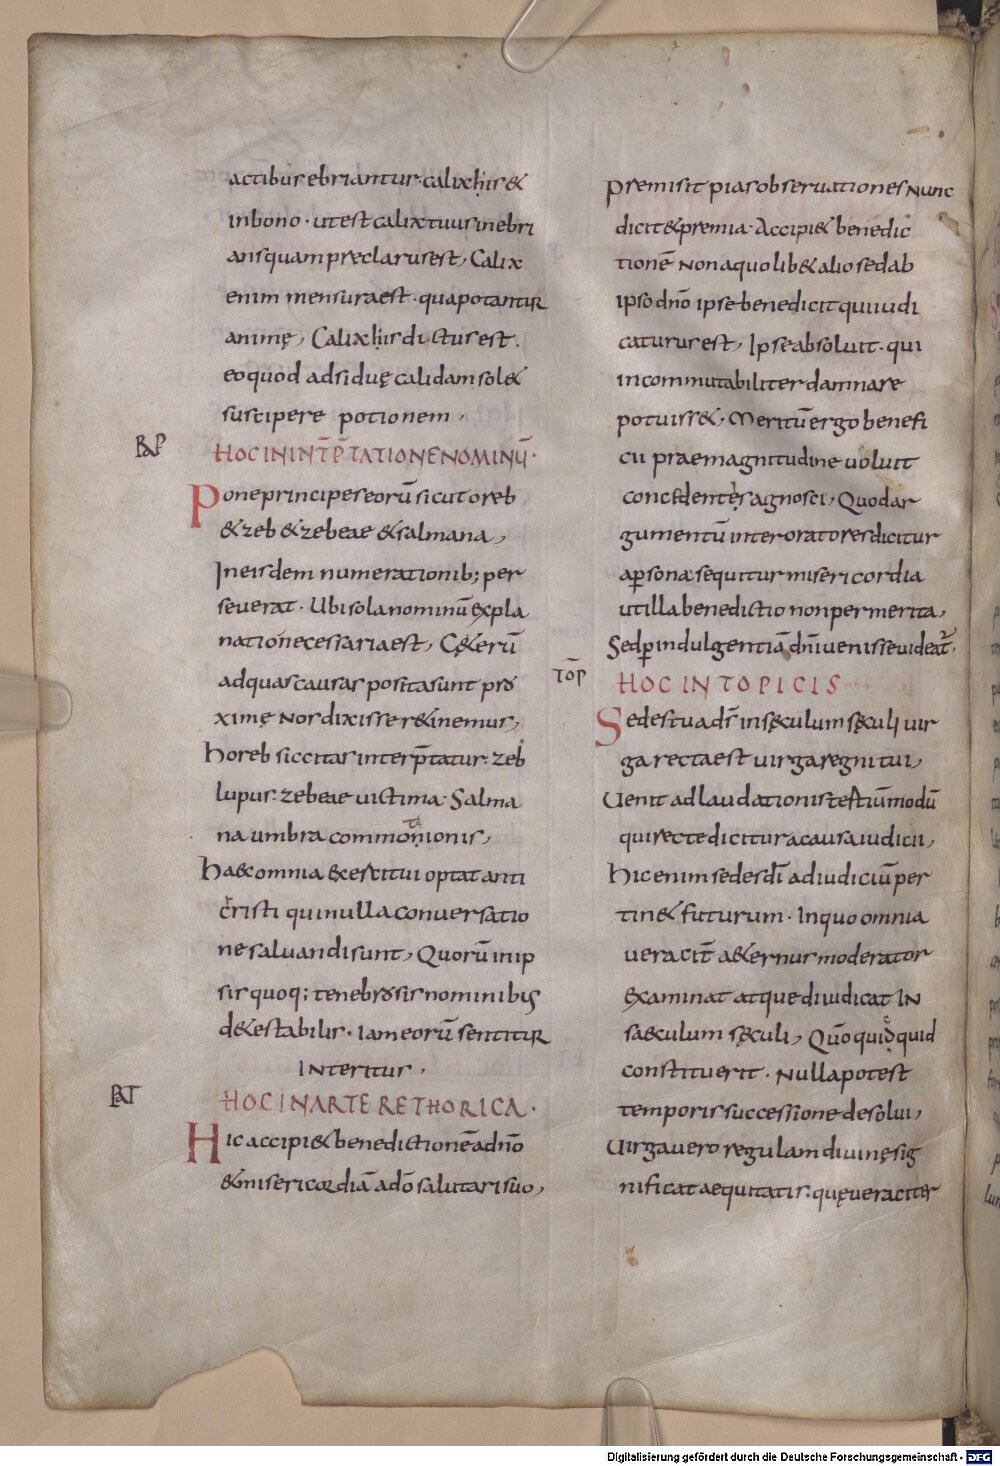 actibus ebriantur. calix his &
inbono. utest calix tuus inebri
ans quam preclarus est, Calix
enim mensura est. qua potantur
animę, Calix his dictus est.
eo quod adsiduę calidam sol&
suscipere potionem,
HOC IN INT̄P̄TATIONE NOMINŪ.
Pone principes eorū sicut oreb
& zeb & zebeae & salmana,
In eisdem numerationib; per
seuerat. Ubi sola nominū expla
natio necessaria est, C&erū
ad quas causas posita sunt pro
ximę nos dixisse r&inemus,
horeb siccitas interp̄tatur. zeb
lupus. zebeae uictima. Salma
na umbra commotionis,
haec omnia & exercitui optat anti
christi qui nulla conuersatio
ne saluandi sunt, Quorū in ip
sis quoq; tenebrosis nominibus
d&estabilis. Iam eorū sentitur
interitus.
HOC IN ARTE RETHORICA.
Hic accipi& benedictionē a dn̄o
& misericordiā a dō salutari suo,
premisit pias obseruationes Nunc
dicit & premia. Accipi& benedic
tionē Non a quolib& alio sed ab
ipso dn̄o ipse benedicit qui iudi
caturus est, Ipse absoluit. qui
incommutabiliter damnare
potuiss&. Meritū ergo benefi
cii prae magnitudine uoluit
concedentes agnosci, Quod ar
gumentū inter oratores dicitur
a p̱sona. sequitur misericordia
ut illa benedictio non per merita,
Sed p̱ indulgentiā dn̄i uenisse uideat̄.
TOP̄
HOC IN TOPICIS
Sedes tua ds̄ in sęculum sęculi uir
ga recta est uirga regni tui,
Uenit ad laudationis testiū modū
qui recte dicitur a causa iudicii,
hic enim sedes dī ad iudiciū per
tin& futurum. In quo omnia
ueracit̄ a&ernus moderator
examinat atque diiudicat IN
saeculum sęculi, Quō quidquid
constituerit. Nulla potest
temporis successione desolui,
Uirga uero regulam diuinę sig
nificat aequitatis. quę ueraciter
Digitalisierung gefördert durch die Deutsche Forschungsgemeinschaft - DFG